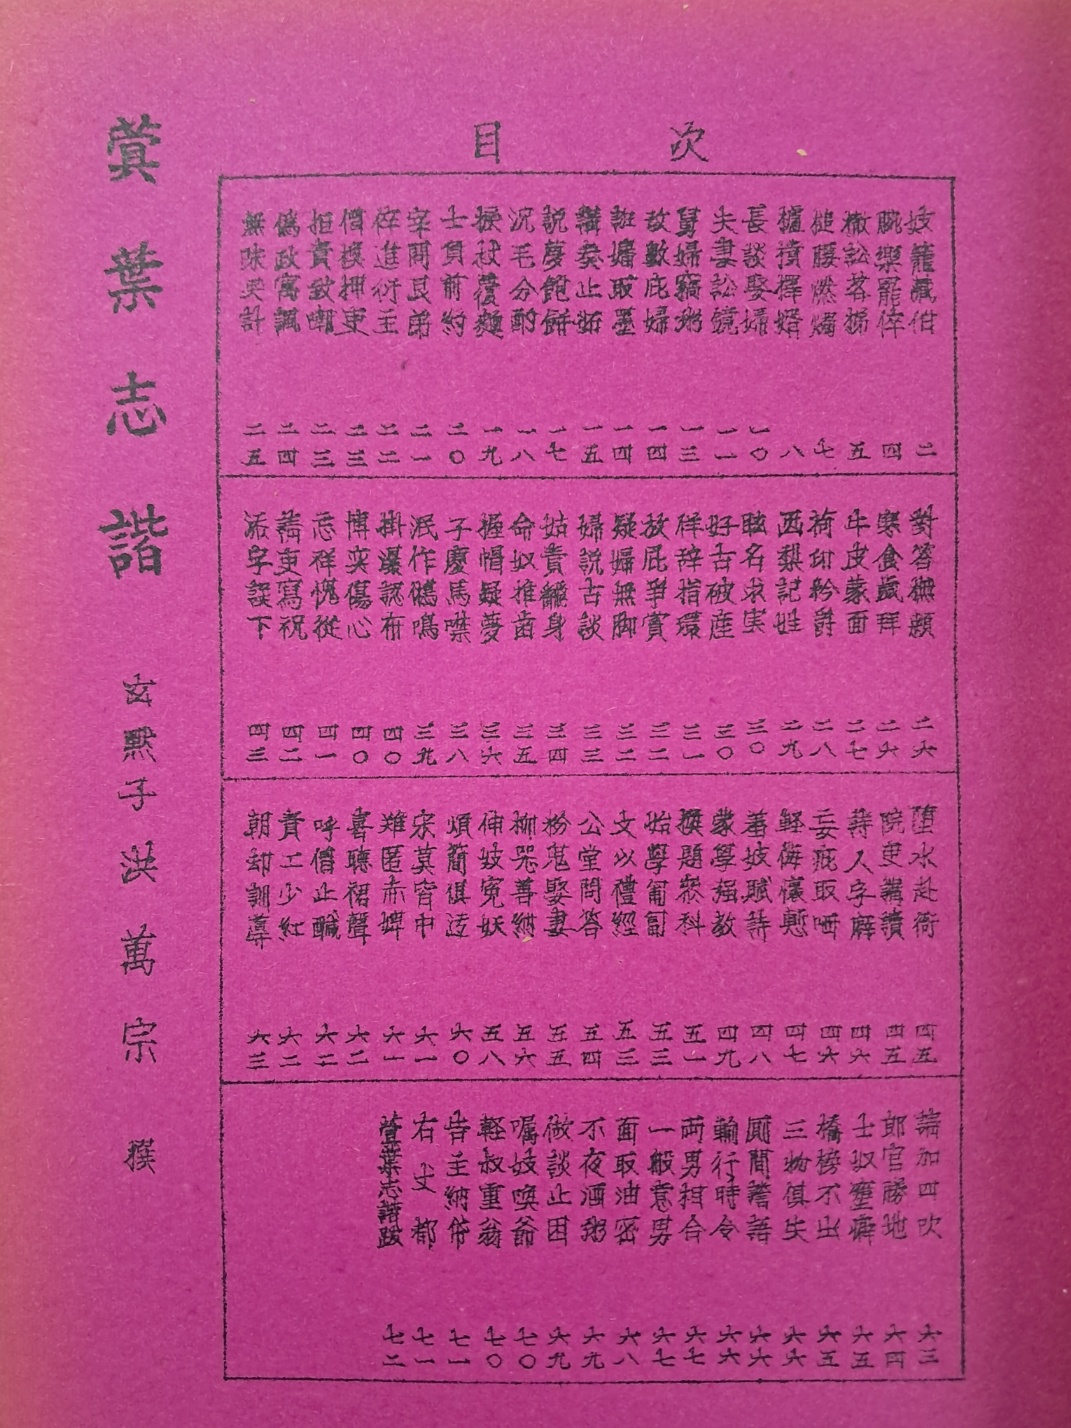 目次
妓籠藏伯 二
腕樂罷倅 四
訟 五
腰燃燭 七
櫝擇婿 八
長談娶婦 一〇
夫妻訟鏡 一一
舅婦竊粥 一三
改數庇婦 一四
取墨 一四
講 止妬 一五
説夢飽餅 一七
沉毛分酌 一八
覆麵 一九
士負前約 二〇
宰問良弟 二一
倅進衍主 二二
僧換押吏 二三
拒責致嘲 二三
僞政寓諷 二四
無陳 計 二五
對答撫題 二六
寒食歲拜 二六
牛皮蒙面 二七
荷印矜爵 二八
西梨記姓 二九
眩名求実 三〇
好古破産 三〇
佯辞指環 三一
放屁爭賞 三二
疑婦無脚 三二
婦説古談 三三
姑責飜身 三四
命奴推齒 三五
握帽疑夢 三六
子慶馬噤 三八
泯作鵂鳴 三九
掛瀑認布 四〇
博奕傷心 四〇
忘祥愧從 四一
請吏寫祝 四二
添字誤下 四三
墮水赴衙 四五
院吏講讀 四五
詩人字癖 四六
妄疵取哂 四六
軽侮懷慙 四七
羞妓賦詩 四八
蒙學強教 四九
換題参科 五一
始學匍匐 五三
文以禮經 五三
公堂問答 五四
粉鬼娶妻 五五
柳器善納 五六
伸妓寃妖 五八
煩簡俱迃 六〇
宋莫宵中 六一
雞匿赤婢 六一
喜聽裙聲 六二
呼僧止鹹 六二
責工少紅 六二
朝却訓導 六三
諾加四吹 六三
郎官勝地 六四
士奴 癖 六五
橋榜不出 六五
三物俱失 六六
厠間譫語 六六
輪行時令 六六
両男相合 六七
一般意男 六七
面取油密 六八
不夜酒粥 六九
做談止囙 六九
嘱妓喚爺 七〇
軽叔重翁 七〇
告主納 七一
右丈都 七一
蓂葉志諧跋 七二
蓂葉志諧 玄默子 洪萬宗 撰